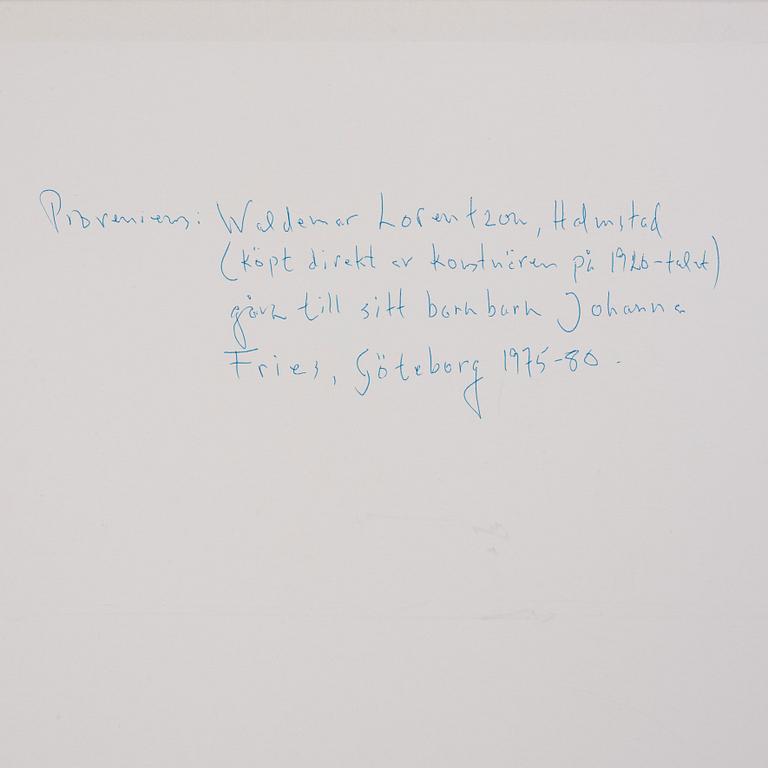 Proveniens: Waldemar Lorentzon, Halmstad
(köpt direkt av konstnären på 1920-talet)
gåva till sitt barnbarn Johanna
Fries, Göteborg 1975-80.